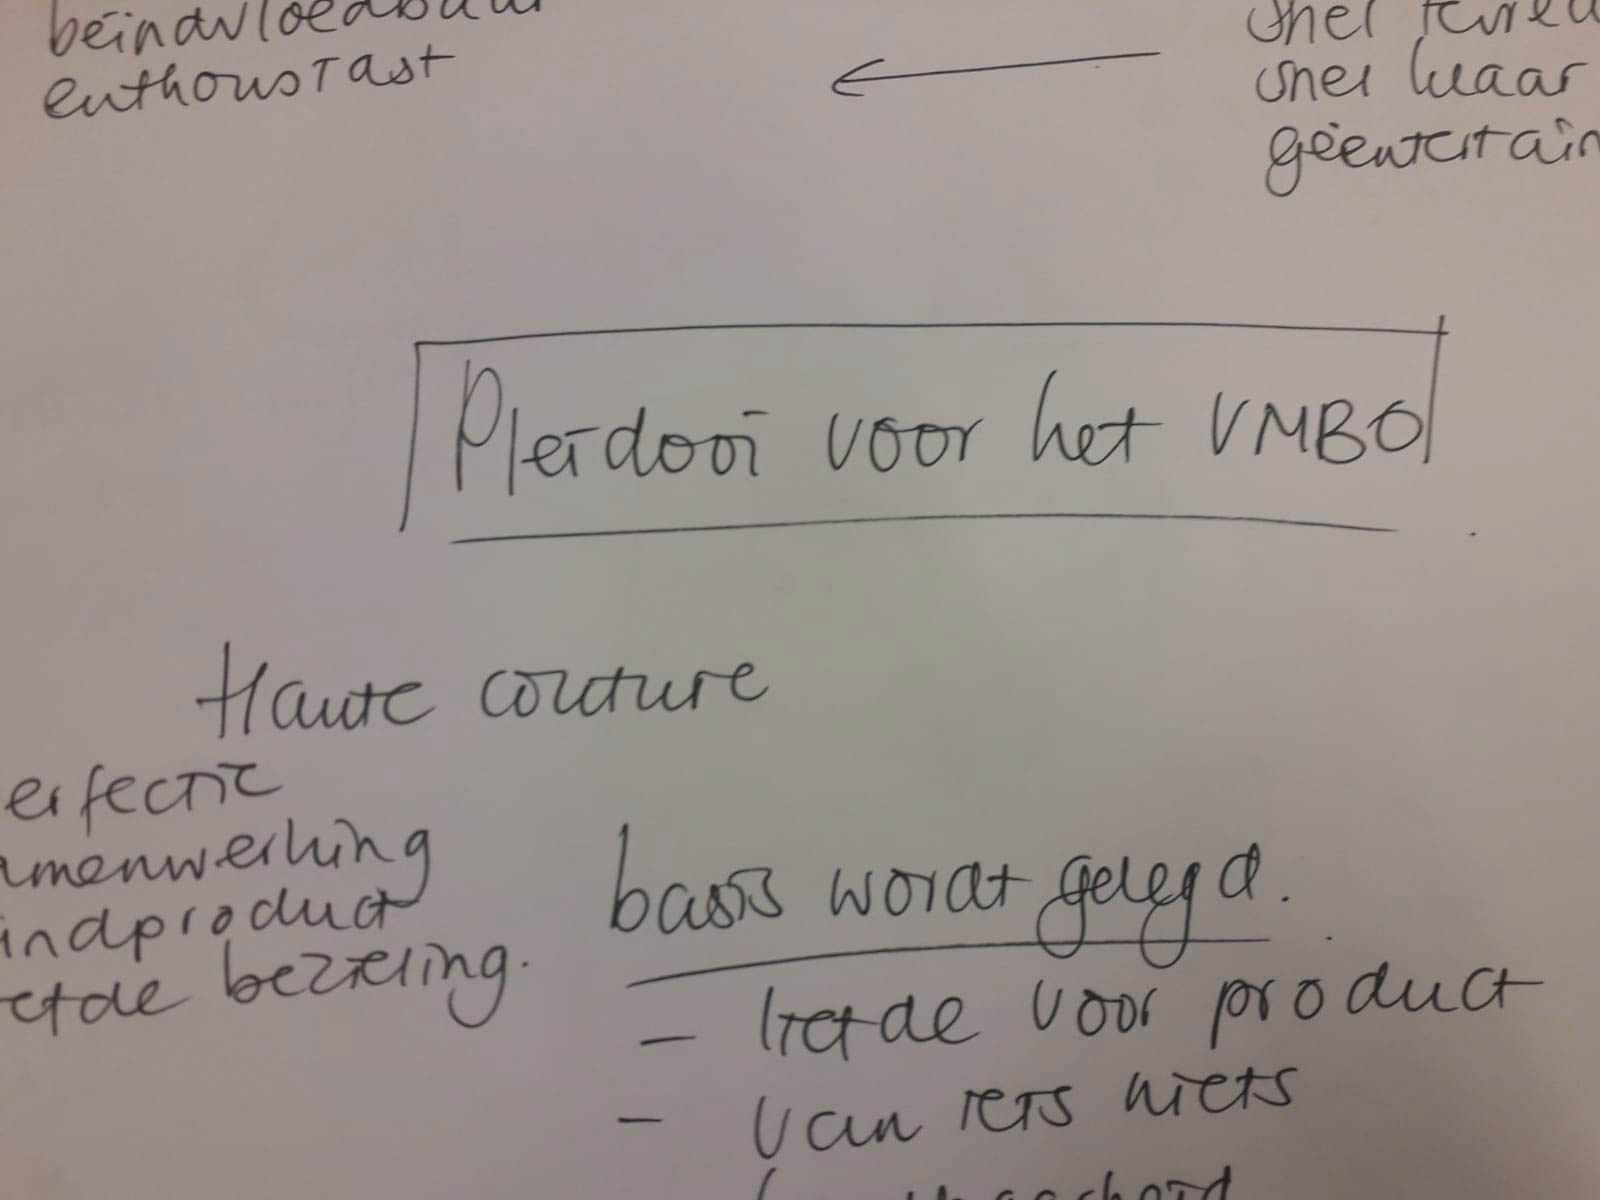 beïnavloedbaar
enthousiast
snel
snel klaar
geëntertain
Pleidooi voor het VMBO
Haute couture
erfectie
amenwerking
indproduct
efde bezieling.
basis wordt gelegd.
- liefde voor product
- van iets niets